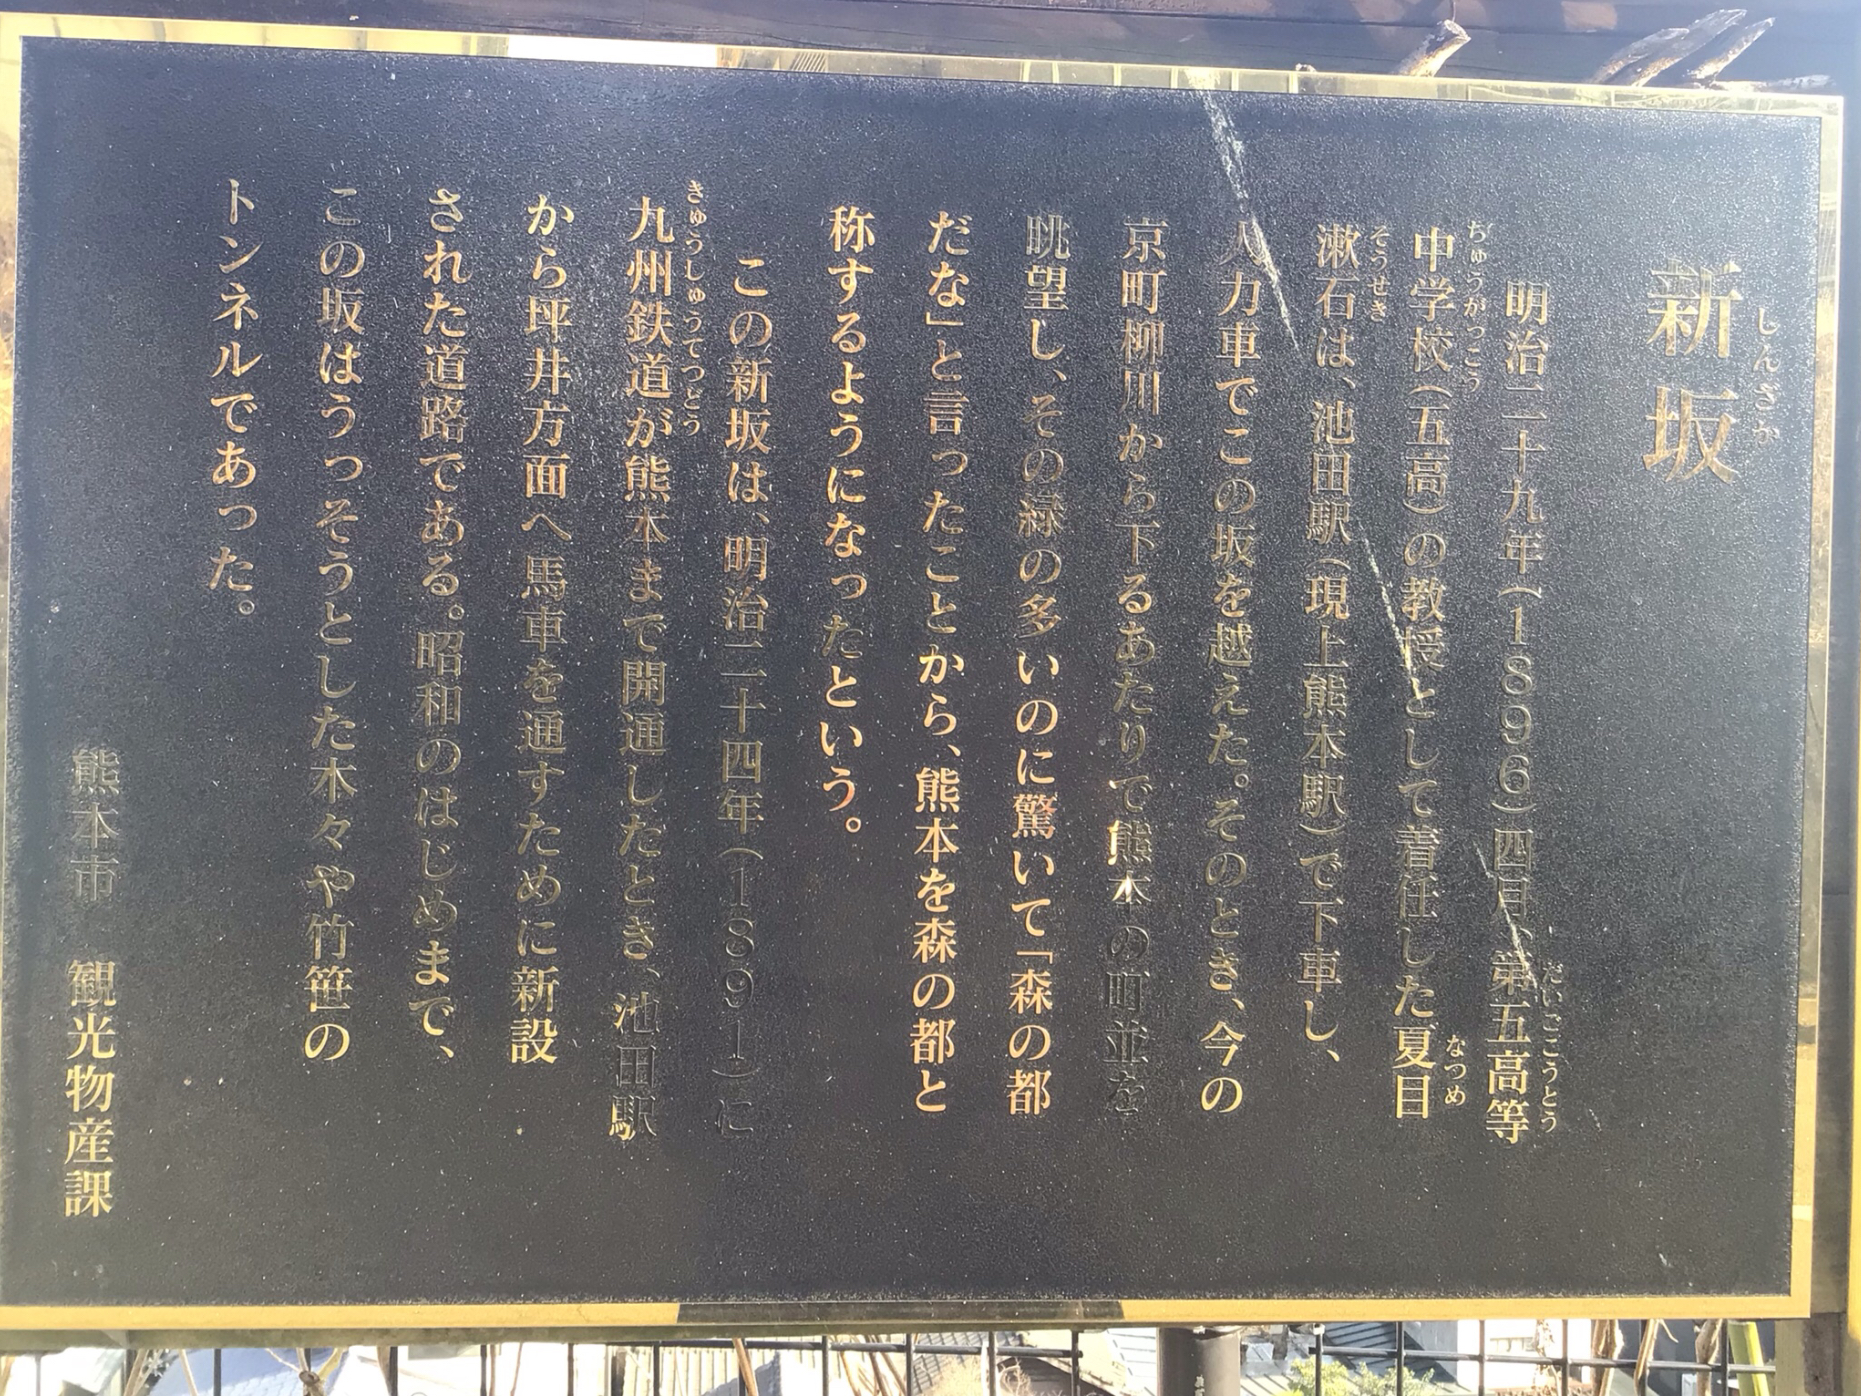 新坂
しんざか
明治二十九年(1896)四月、第五高等
だいごこうとう
中学校(五高)の教授として着任した夏目
ちゅうがっこう なつめ
漱石は、池田駅(現上熊本駅)で下車し、
そうせき
人力車でこの坂を越えた。そのとき、今の
京町柳川から下るあたりで熊本の町並を
眺望し、その緑の多いのに驚いて「森の都
だな」と言ったことから、熊本を森の都と
称するようになったという。
この新坂は、明治二十四年(1891)に
九州鉄道が熊本まで開通したとき、池田駅
きゅうしゅうてつどう
から坪井方面へ馬車を通すために新設
された道路である。昭和のはじめまで、
この坂はうっそうとした木々や竹笹の
トンネルであった。
熊本市 観光物産課